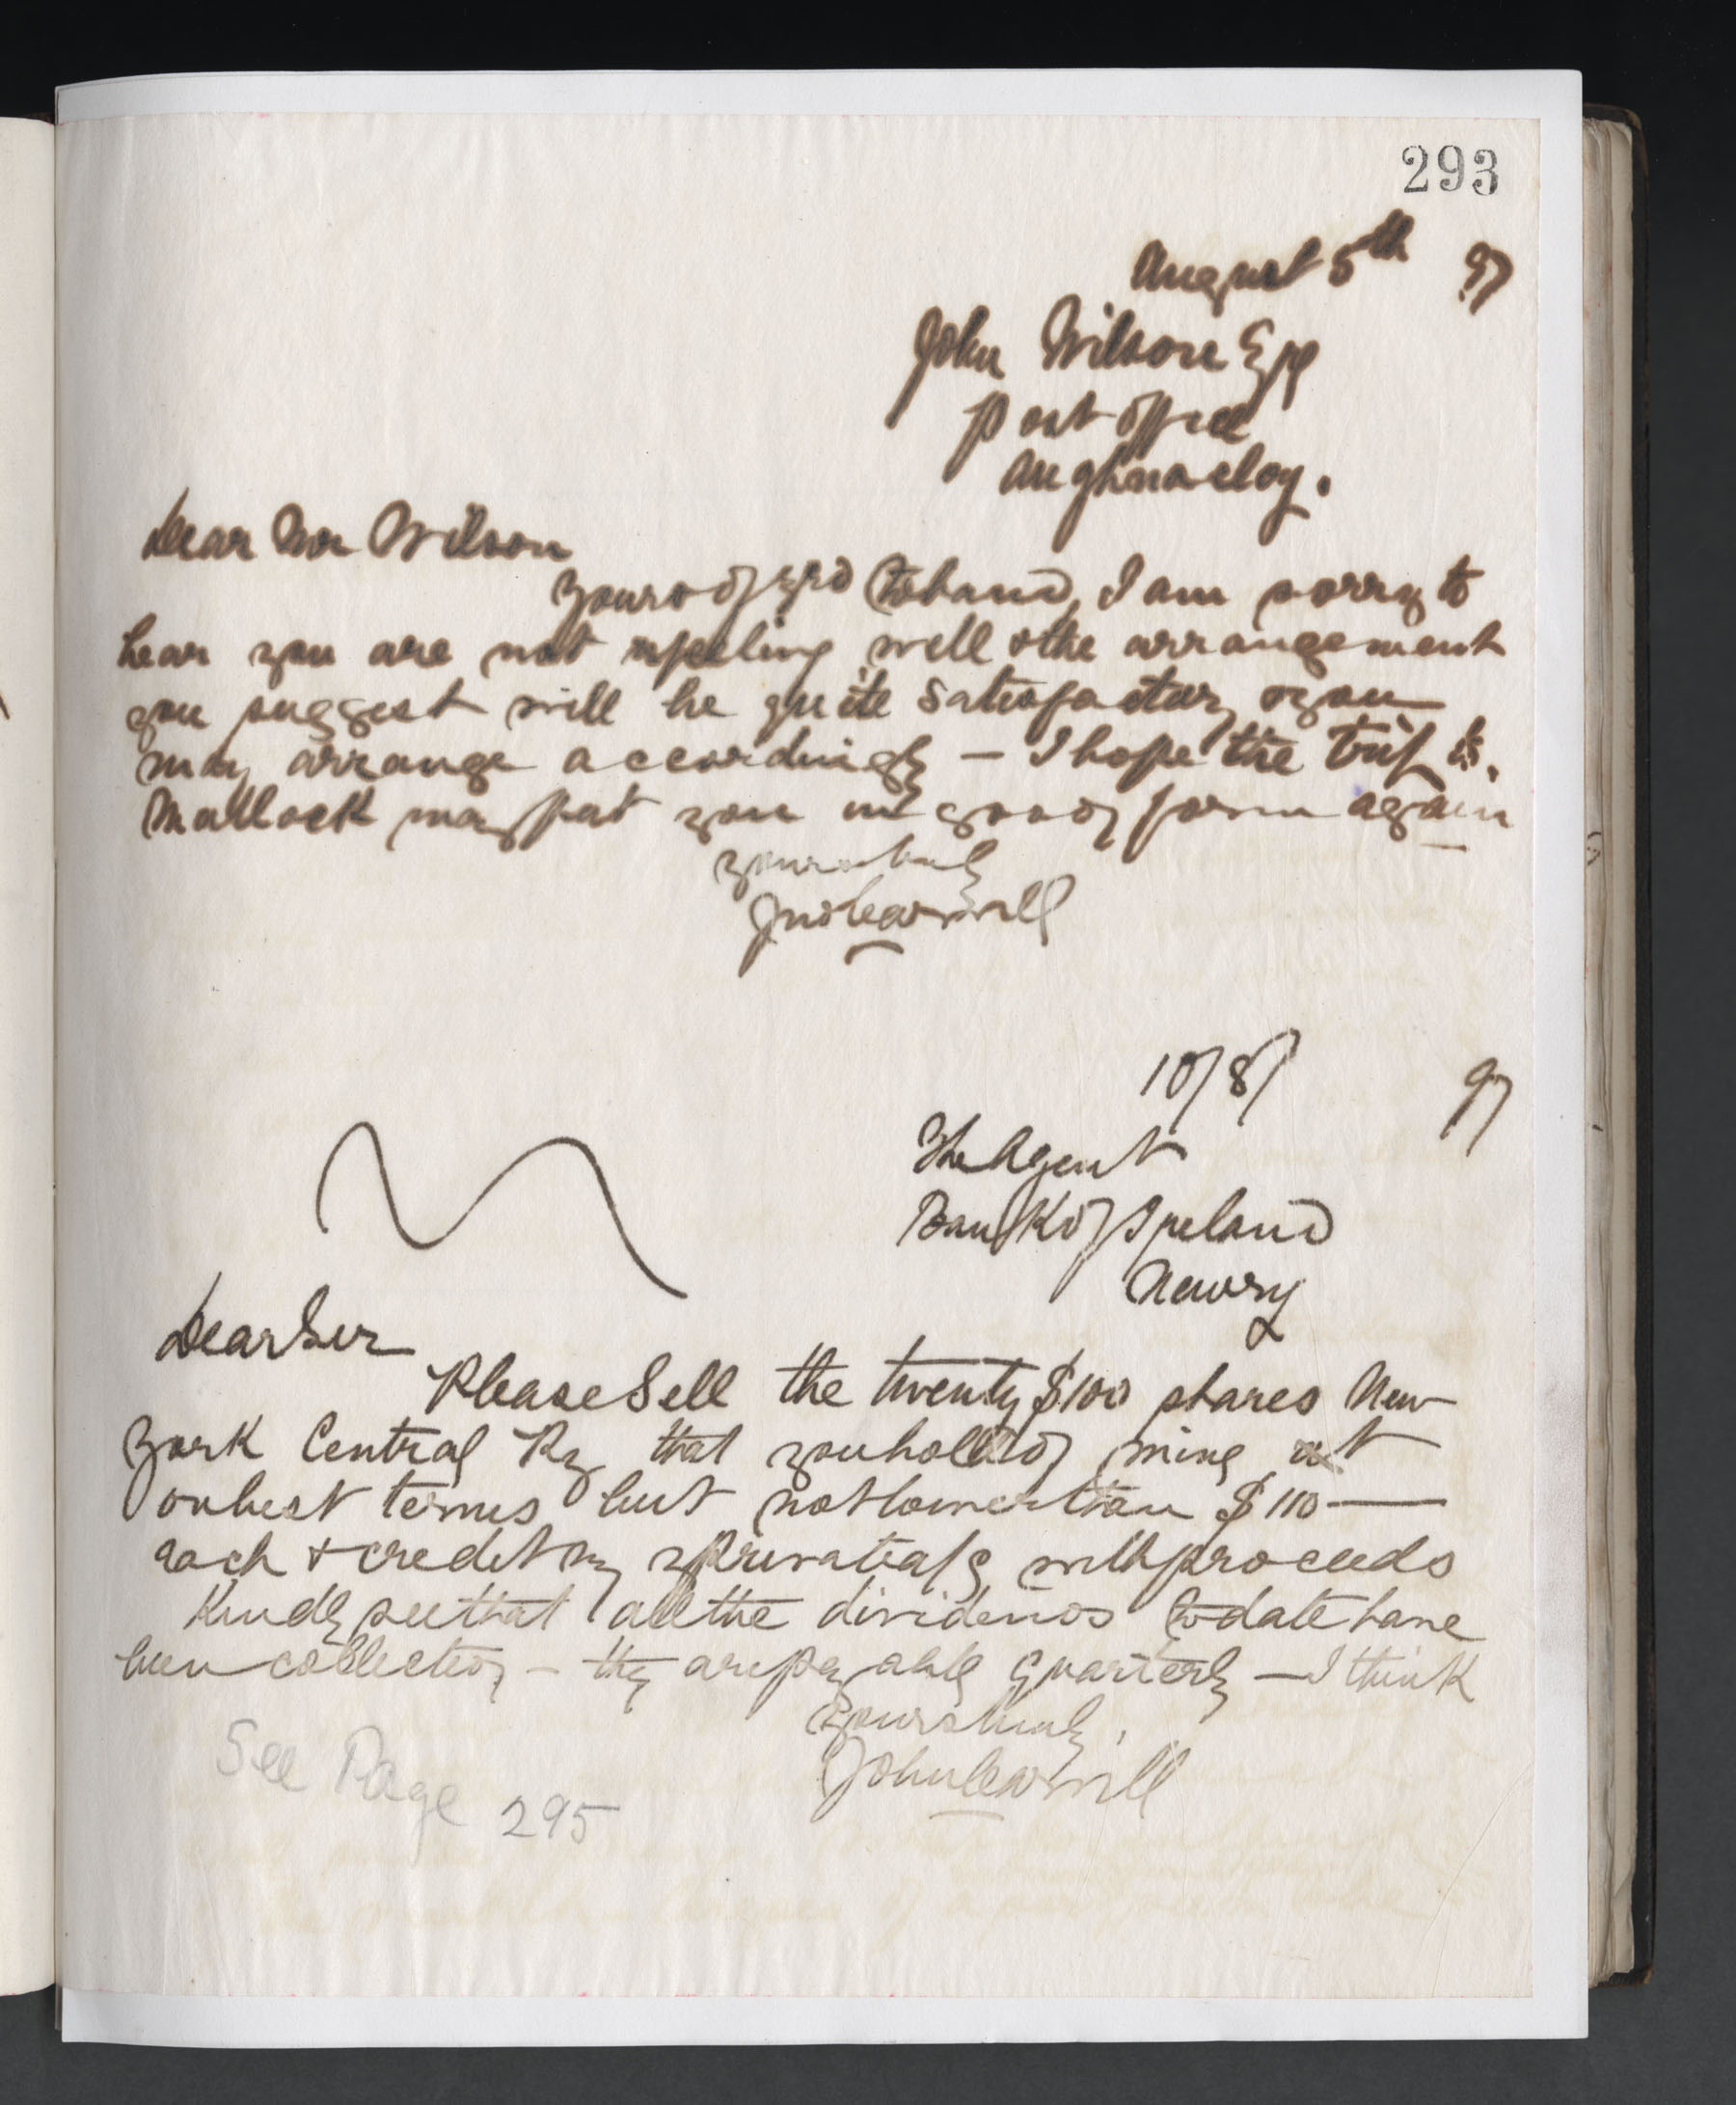 293
August 5th 97
John Wilson Esq
Post Office
Aughnacloy.
Dear Mr Wilson
Yours of 3rd to hand, I am sorry to
hear you are not feeling well & the arrangement
you suggest will be quite satisfactory & you
may arrange accordingly – I hope the trip to
Matlock may put you in good form again
Yours truly
10/8/ 97
The Agent
Bank of Ireland
Newry
Dear Sir
Please Sell the twenty $100 shares New
York Central Ry that you hold of mine at
or best terms but not lower than $110 —
each & credit my private a/c with proceeds
Kindly see that all the dividends to date have
been collected, – they are payable quarterly – I think
Yours truly,
See Page 295